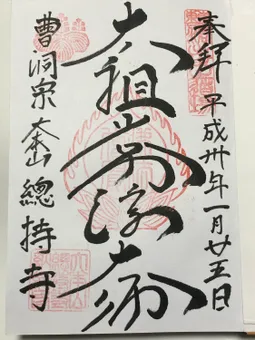 奉拝 平成卅年一月廿五日
太祖常済大師
曹洞宗 大本山 總持寺